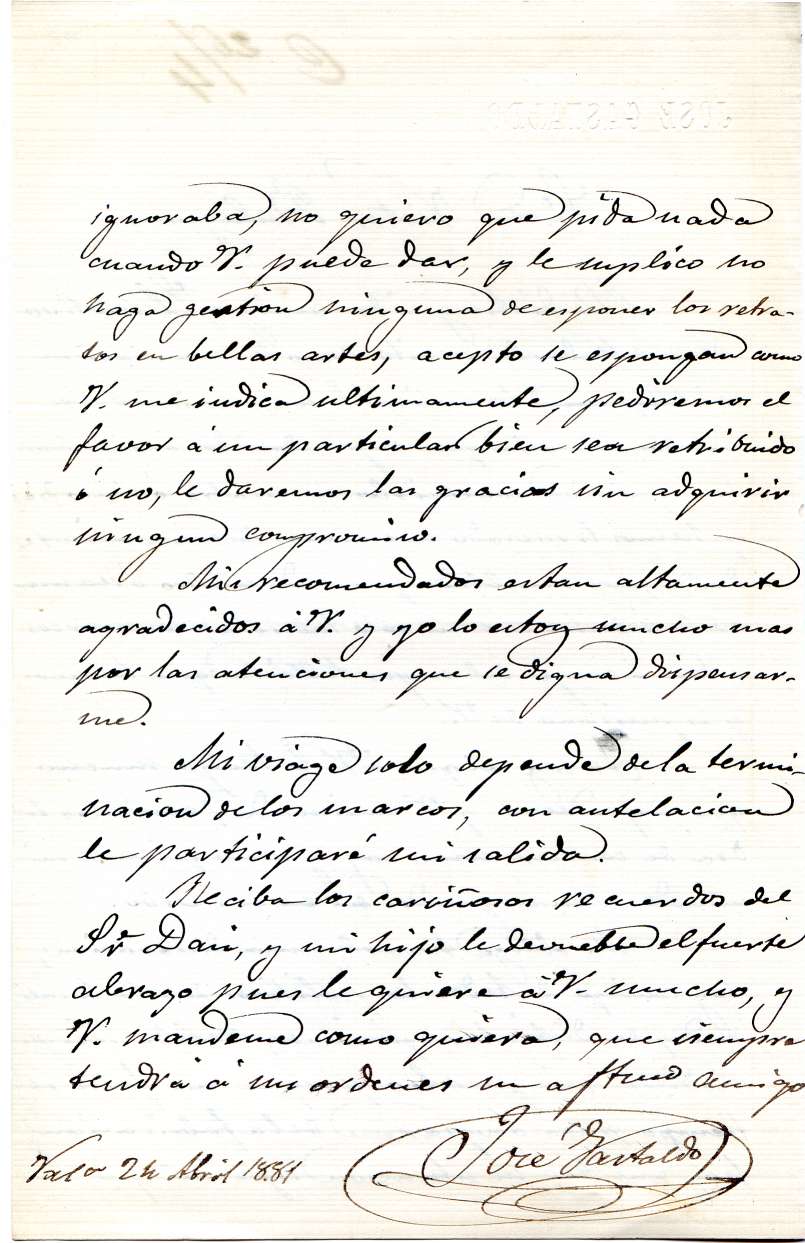 ignoraba, no quiero que pida nada
cuando V. puede dar, y le suplico no
haga gestion ninguna de esponer los retra-
tos en bellas artes, acepto se espongan como
V. me indica ultimamente, pediremos el
favor á un particular bien sea retribuido
ó no, le daremos las gracias sin adquirir
ningun compromiso.
Mis recomendados estan altamente
agradecidos á V. y yo lo estoy mucho mas
por las atenciones que se digna dispensar-
me.
Mi viage solo depende de la termi-
nacion de los marcos, con antelacion
le participaré mi salida.
Reciba los cariñosos recuerdos del
Sr. Dasi, y mi hijo le devuelbe el fuerte
abrazo pues le quiere á V. mucho, y
V. mandeme como quiera, que siempre
tendrá á sus ordenes un aftmo amigo
José Gastaldo
Vala 24 Abril 1881